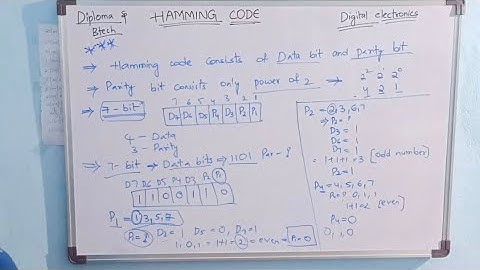 Diploma &
Btech
HAMMING CODE
Digital electronics
⇒ Hamming code consists of Data bit and parity bit
⇒ Parity bit consists only power of 2 → 2² 2¹ 2⁰
4 2 1
⇒ 7-bit
7 6 5 4 3 2 1
D7 D6 D5 P4 D3 P2 P1
4 - Data
3 - Parity
⇒ 7-bit → Data bits → 1101
D7 D6 D5 P4 D3 P2 P1
1 1 0 0 1 1 0
P1 = 1,3,5,7
P1=? D3=1 D5=0, D7=1
1, 0, 1 = 1+1=2 = even → P1=0
P2 = 2,3,6,7
⇒ P2=?
D3=1
D6=1
D7=1
= 1+1+1=3 [odd number]
P2=1
P4=4,5,6,7
1+1=2 (even)
P4=0